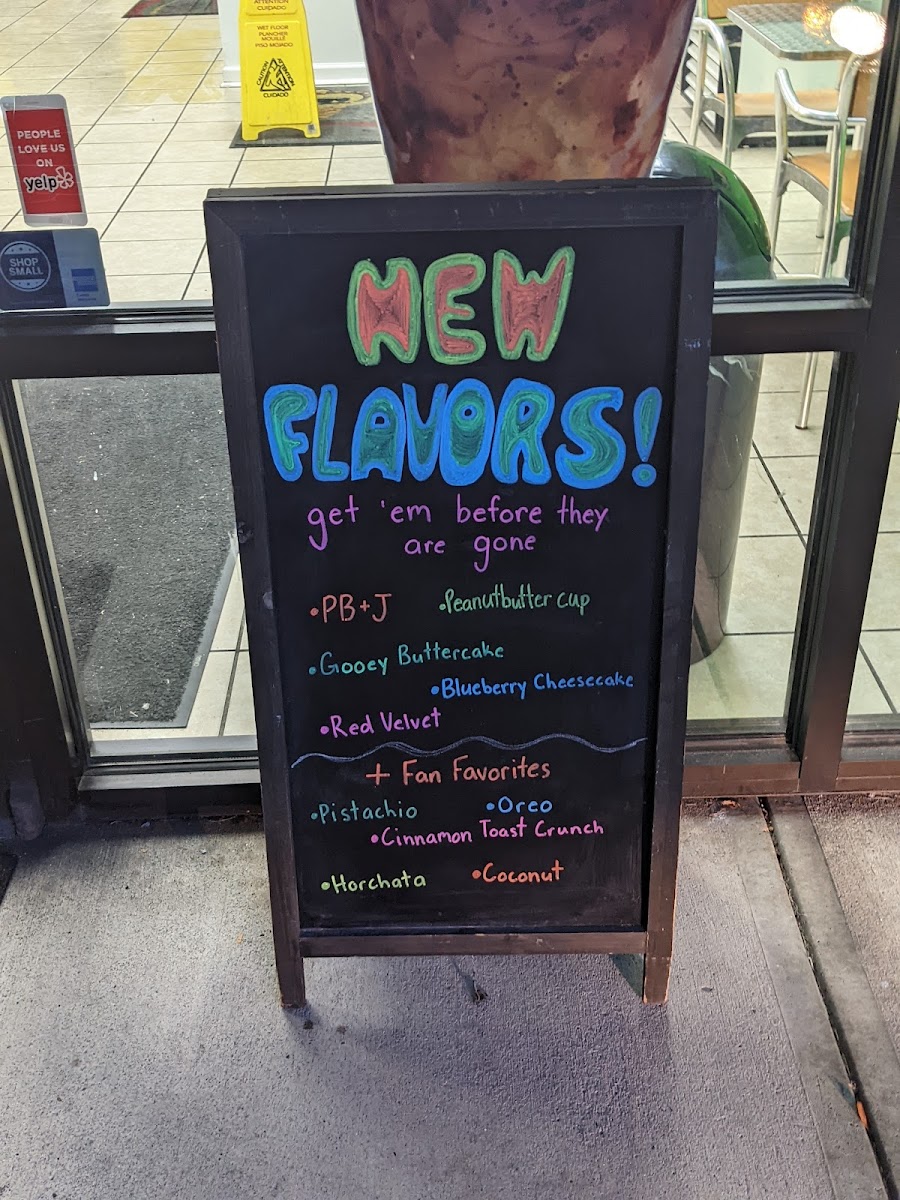 ATTENTION
CUIDADO
WET FLOOR
PLANCHER
MOUILLÉ
PISO MOJADO
CAUTION
ATTENTION
CUIDADO
PEOPLE
LOVE US
ON
yelp
SHOP
SMALL
NEW
FLAVORS!
get 'em before they
are gone
•PB+J •Peanutbutter cup
•Gooey Buttercake
•Blueberry Cheesecake
•Red Velvet
+ Fan Favorites
•Pistachio •Oreo
•Cinnamon Toast Crunch
•Horchata •Coconut